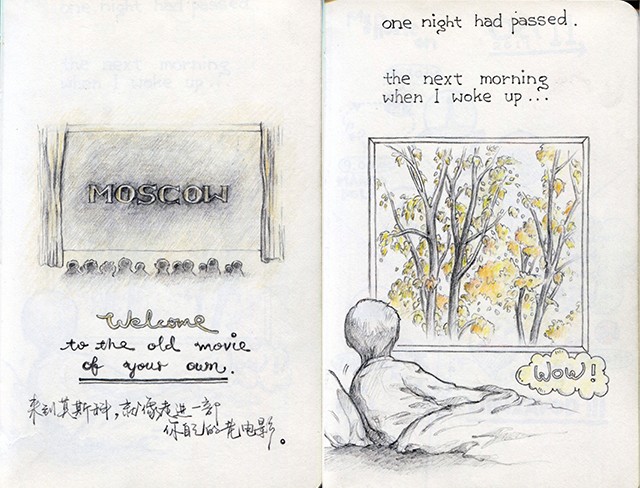 MOSCOW
Welcome
to the old movie
of your own.
来到莫斯科，就像走进一部
你自己的老电影。
one night had passed.
the next morning
when I woke up...
WOW!